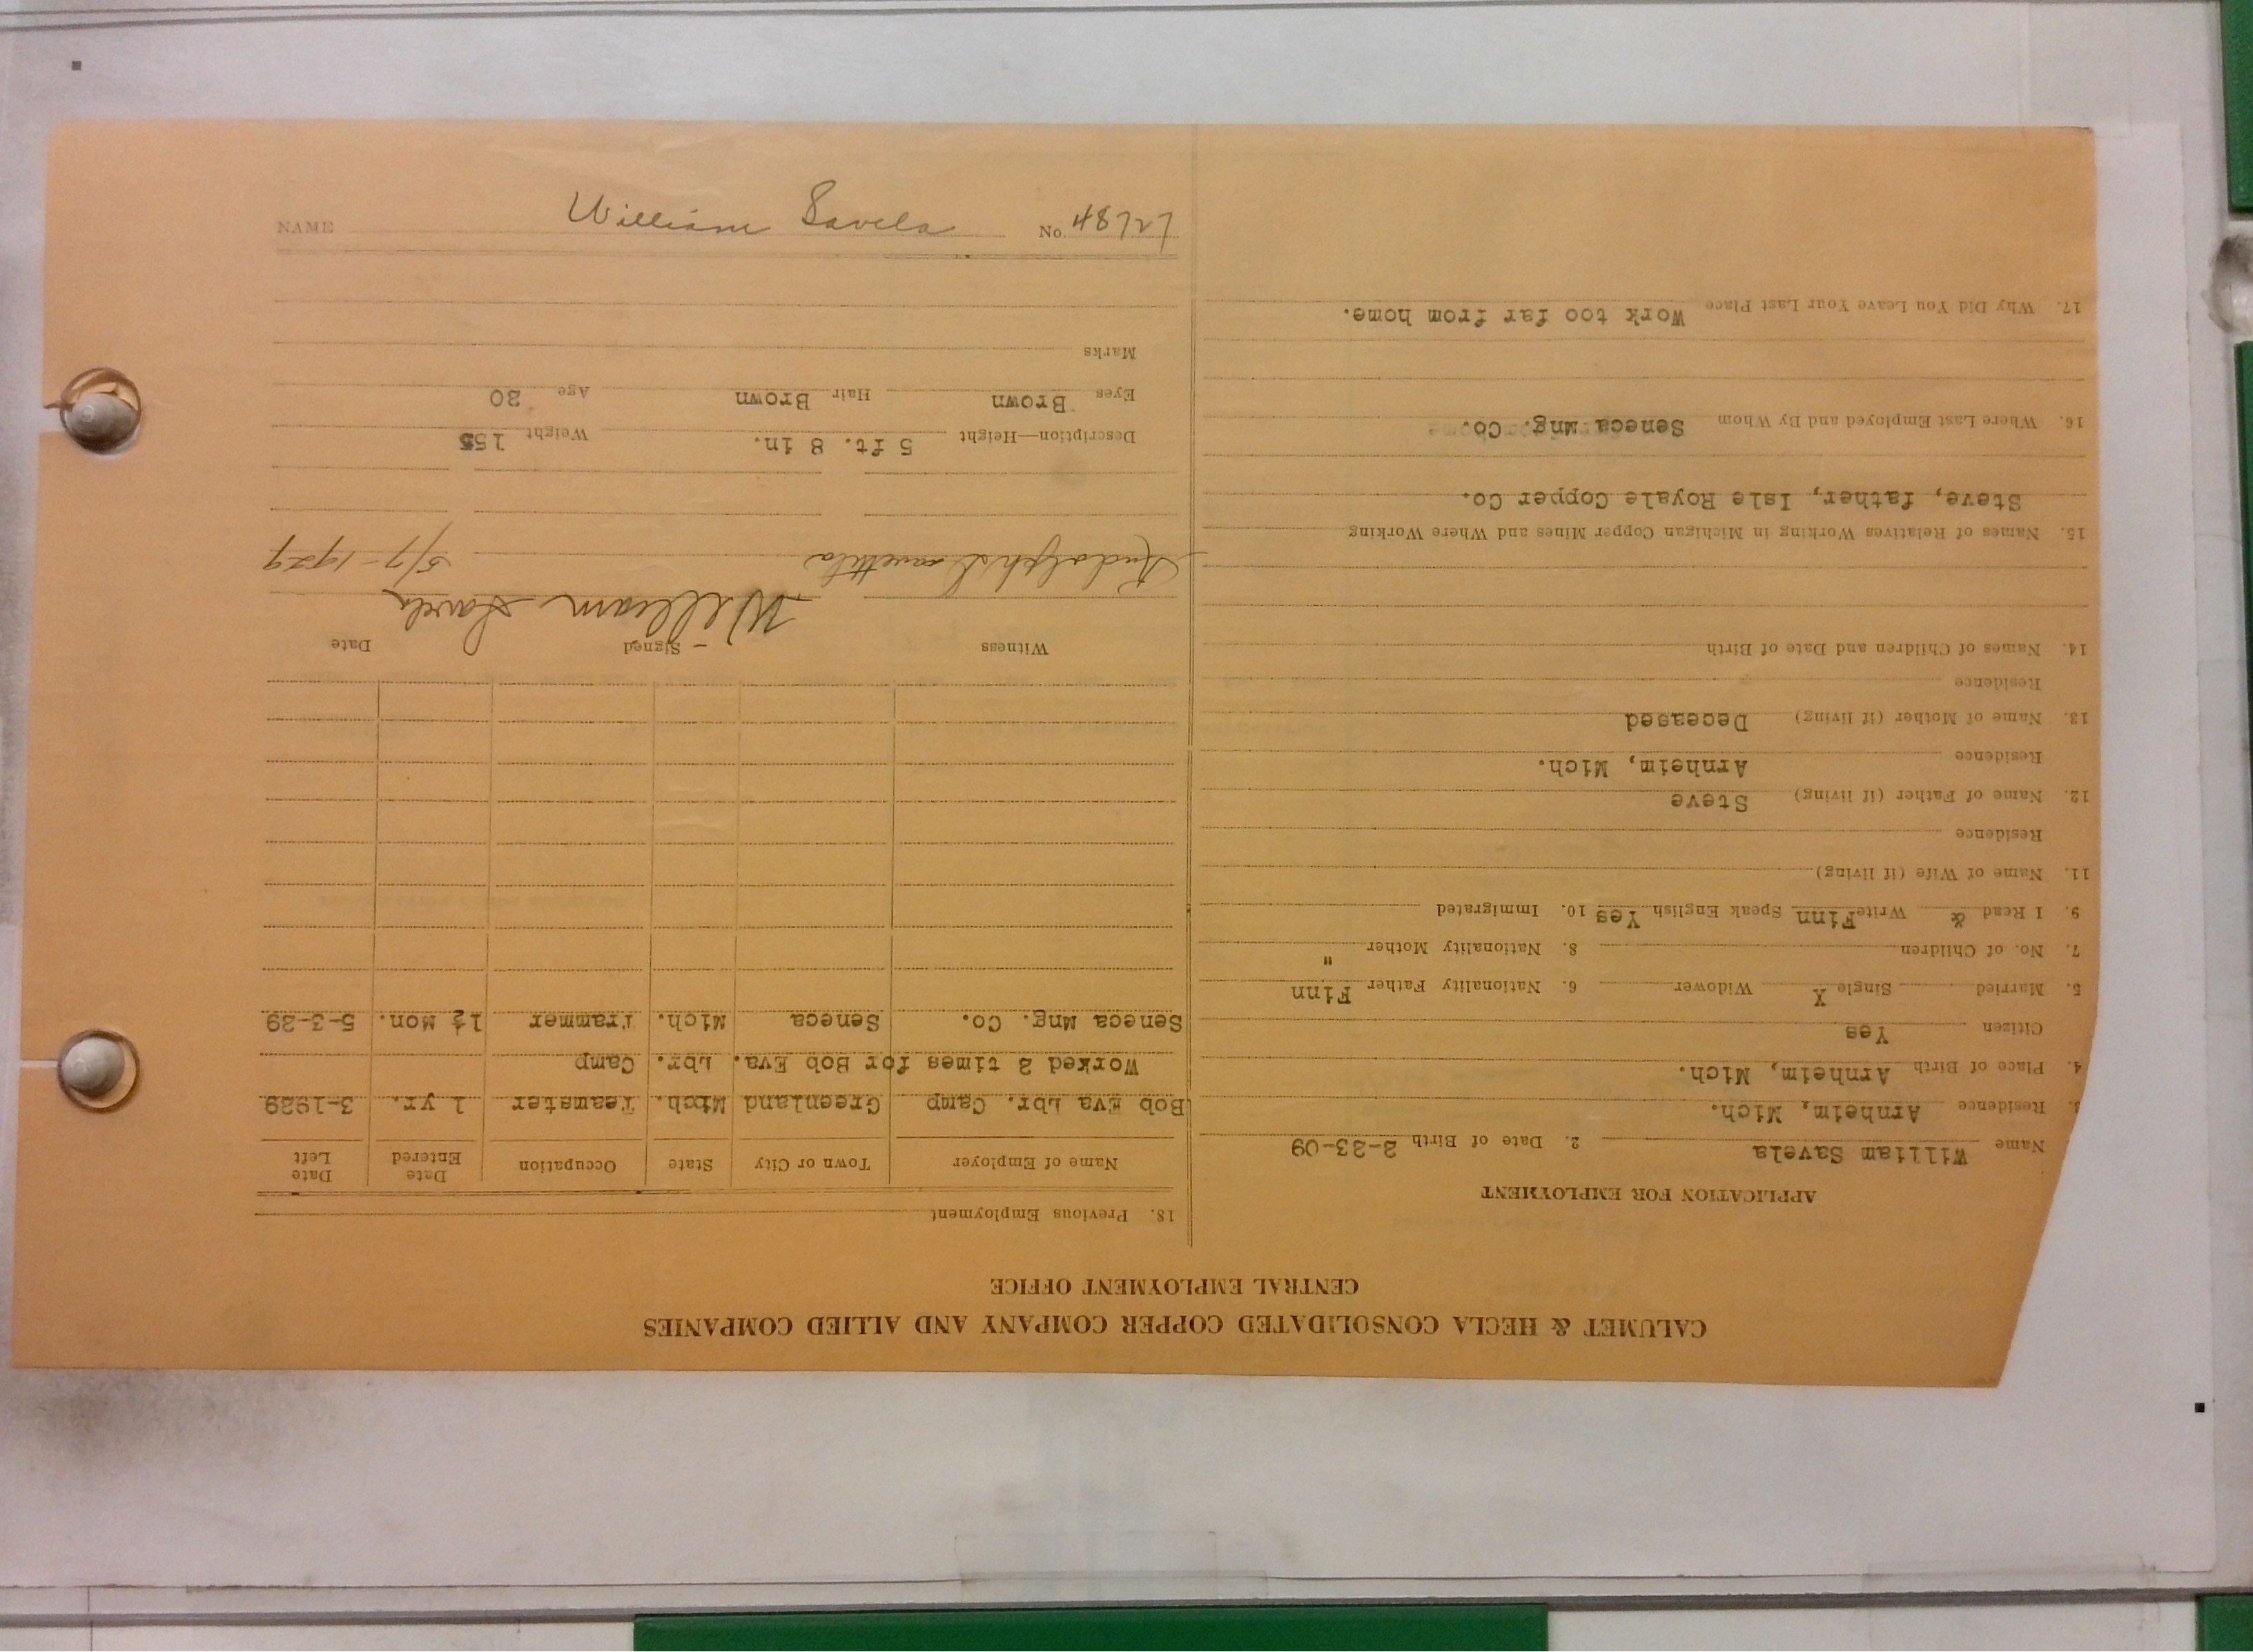 CALUMET & HECLA CONSOLIDATED COPPER COMPANY AND ALLIED COMPANIES
CENTRAL EMPLOYMENT OFFICE
APPLICATION FOR EMPLOYMENT
Name William Savela 2. Date of Birth 2-22-09
3. Residence Arnheim, Mich.
4. Place of Birth Arnheim, Mich.
Citizen Yes
5. Married Single X Widower 6. Nationality Father Finn
7. No. of Children 8. Nationality Mother "
9. I Read & Write Finn Speak English Yes 10. Immigrated
11. Name of Wife (if living)
Residence
12. Name of Father (if living) Steve
Residence Arnheim, Mich.
13. Name of Mother (if living) Deceased
Residence
14. Names of Children and Date of Birth
15. Names of Relatives Working in Michigan Copper Mines and Where Working
Steve, father, Isle Royale Copper Co.
16. Where Last Employed and By Whom Seneca Mng. Co.
17. Why Did You Leave Your Last Place Work too far from home.
18. Previous Employment
Name of Employer Town or City State Occupation Date Entered Date Left
Bob Eva Lbr. Camp Greenland Mich. Teamster 1 yr. 2-1929
Worked 2 times for Bob Eva. Lbr. Camp
Seneca Mng. Co. Seneca Mich. Trammer 1½ Mon. 5-2-29
Witness Signed Date
William Savela
Rudolph 5/7-1929
Description—Height 5 ft. 8 in. Weight 155
Eyes Brown Hair Brown Age 20
Marks
NAME William Savela No. 48727